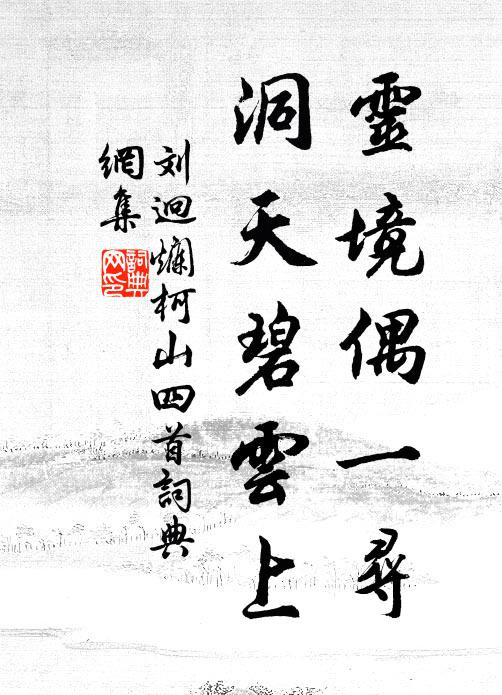 靈境偶一尋
洞天碧雲上
刘迥爛柯山四首詞典
網集
詞典
网印